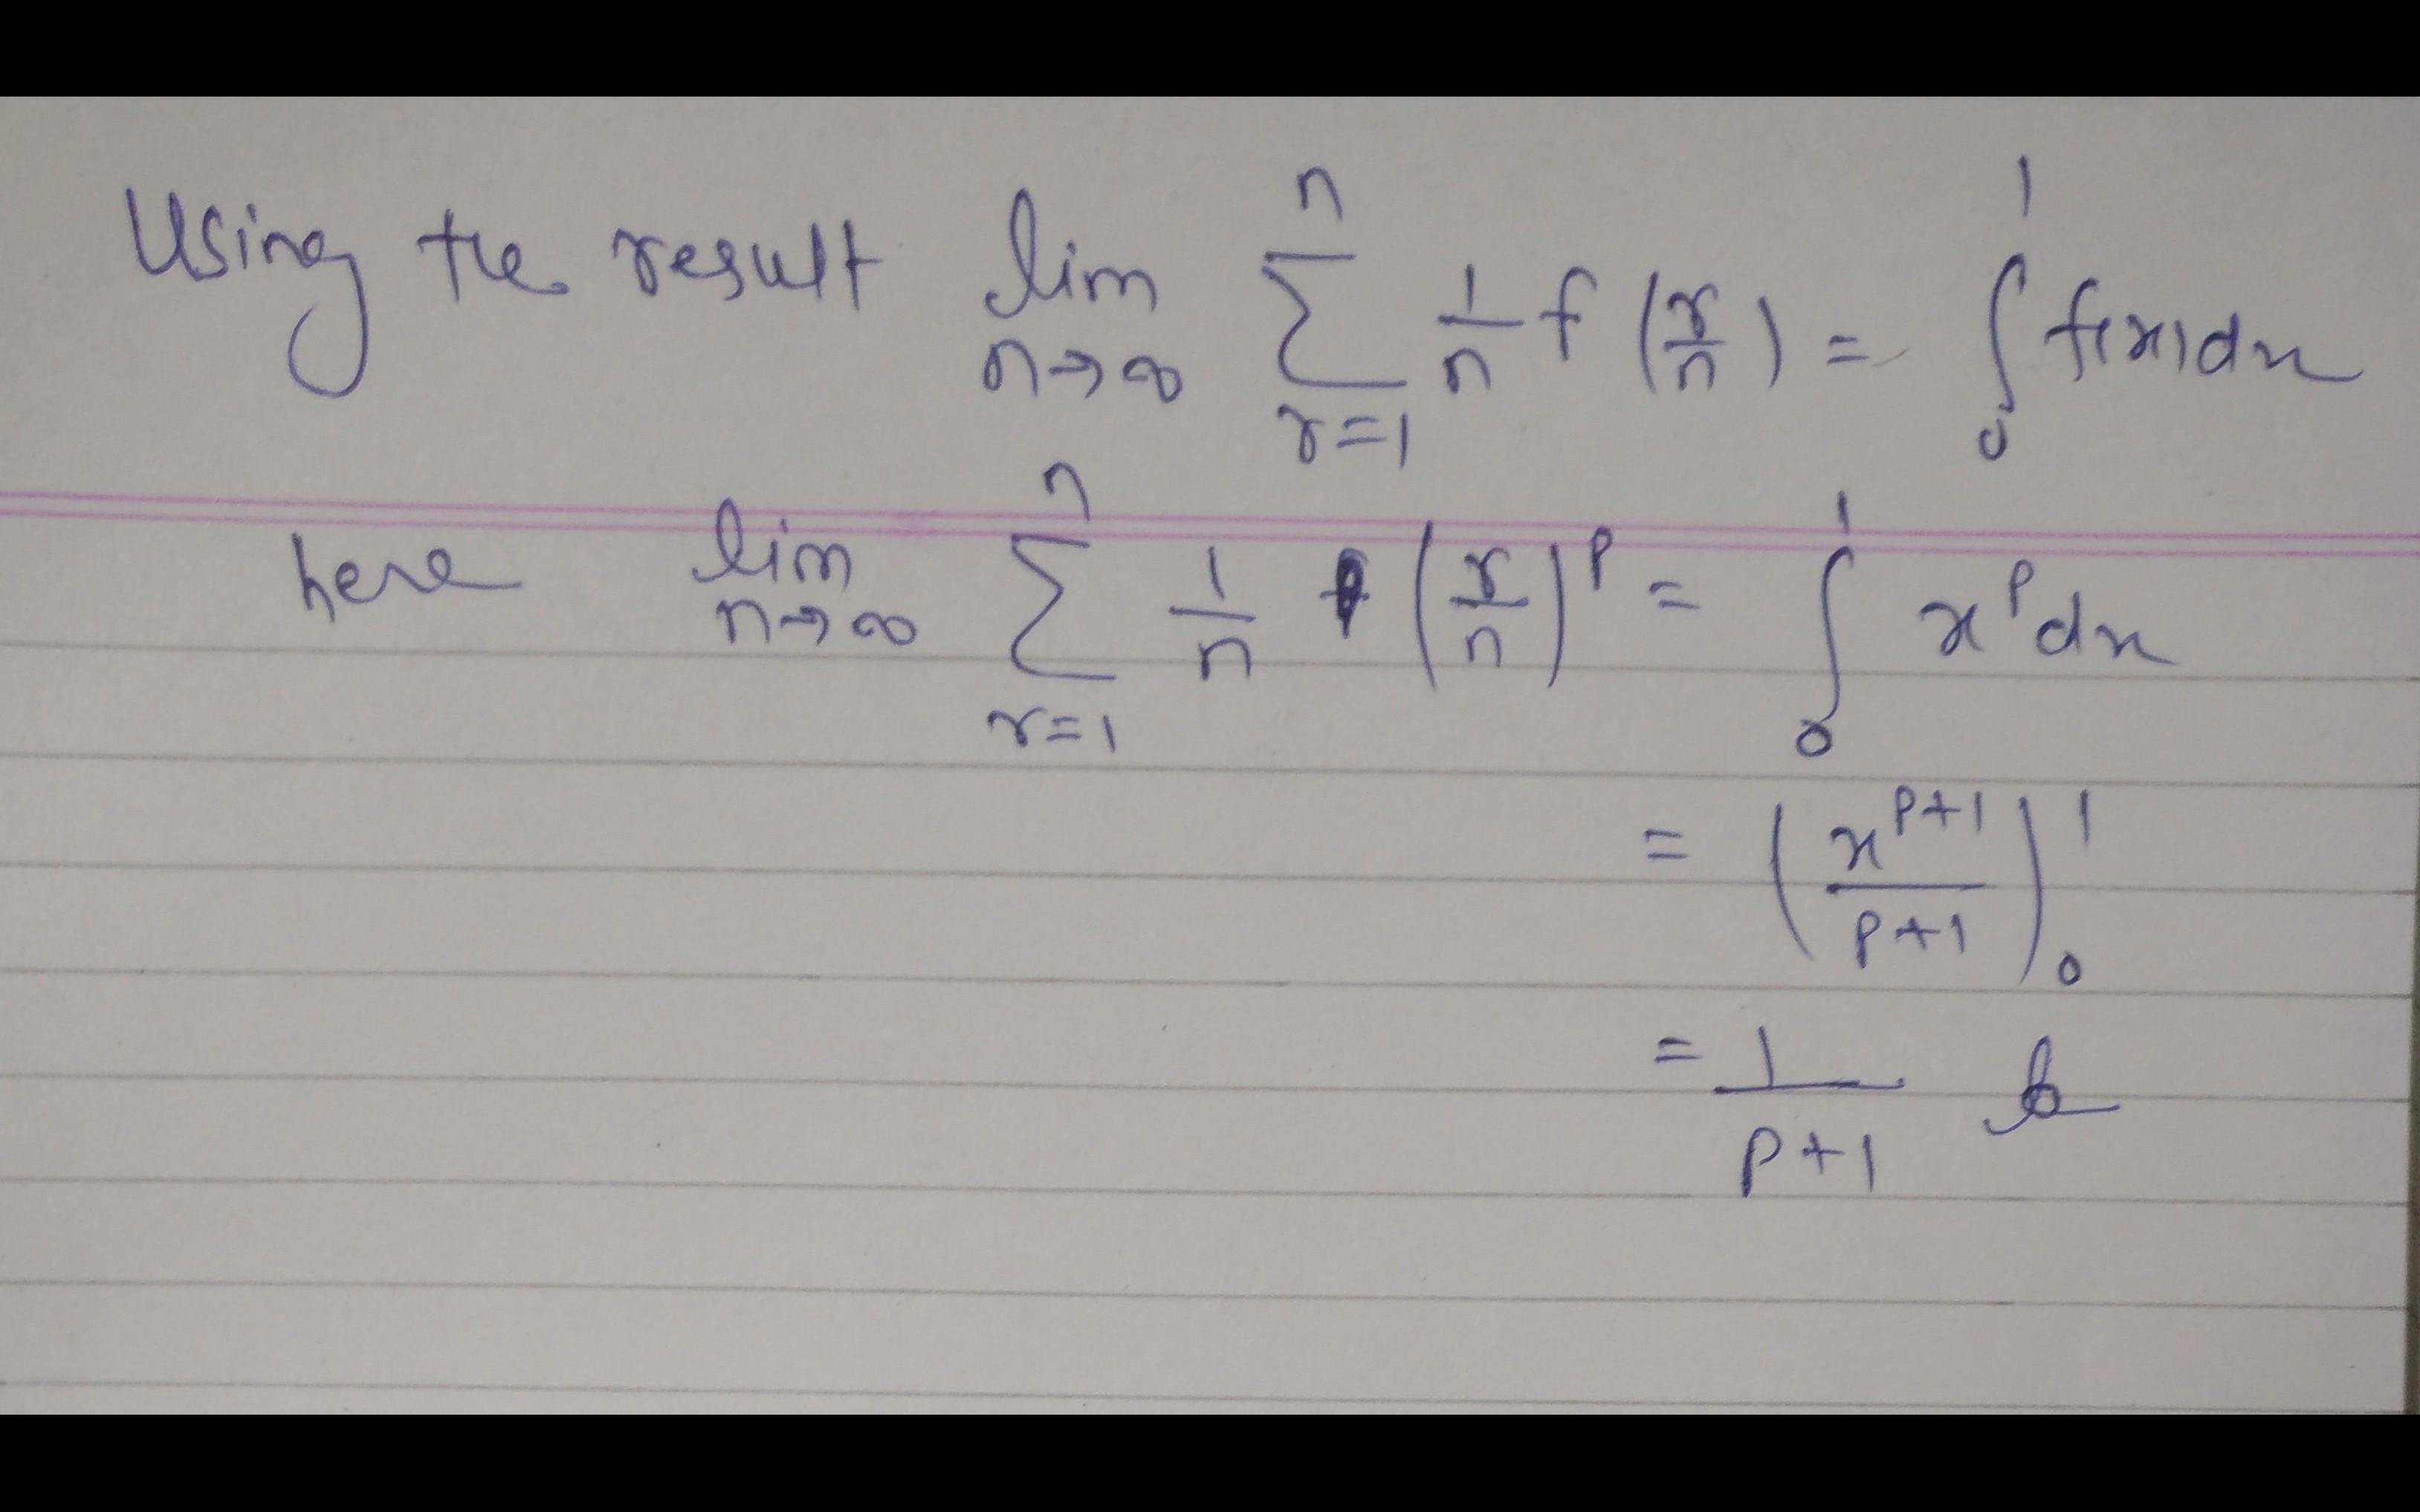 Using the result lim n→∞ n Σ r=1 1/n f (r/n) = 1 ∫ 0 f(x)dx
here lim n→∞ n Σ r=1 1/n (r/n)^p = 1 ∫ 0 x^p dx
= (x^(p+1)/(p+1)) 1 0
= 1/(p+1)